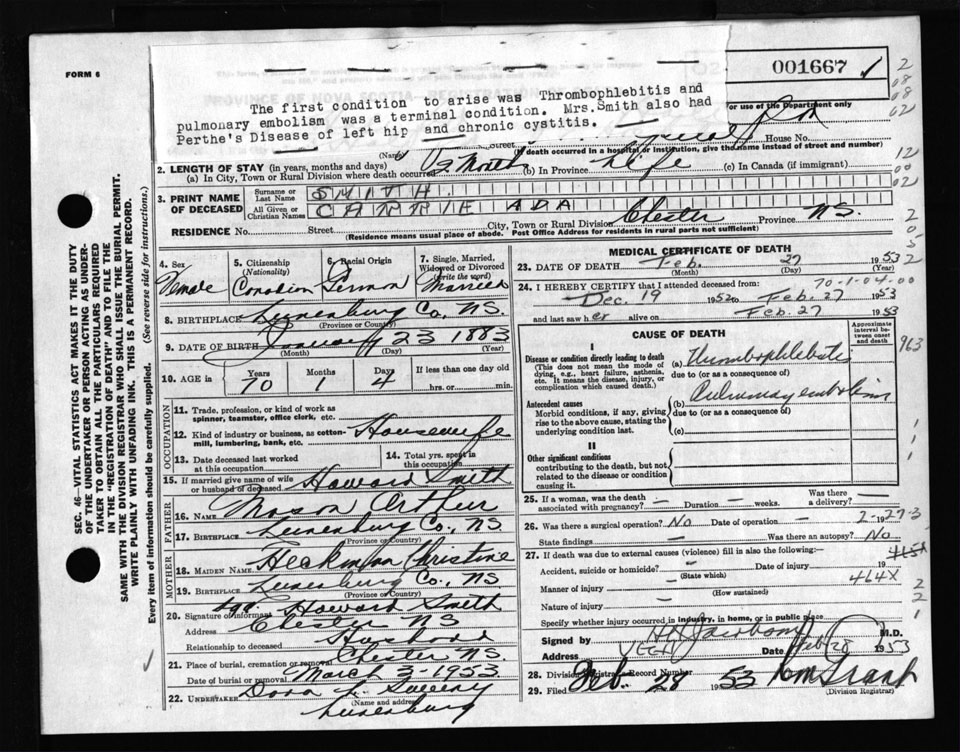 FORM 6
001667
The first condition to arise was Thrombophlebitis and
pulmonary embolism was a terminal condition. Mrs. Smith also had
Perthe's Disease of left hip and chronic cystitis.
PROVINCE OF NOVA SCOTIA
For use of the Department only
Street
House No.
(Name)
(If death occurred in a hospital or institution, give the name instead of street and number)
2. LENGTH OF STAY (in years, months and days)
(a) In City, Town or Rural Division where death occurred 2 Months (b) In Province Life (c) In Canada (if immigrant)
3. PRINT NAME OF DECEASED
Surname or Last Name SMITH.
All Given or Christian Names CARRIE ADA
RESIDENCE No. Street City, Town or Rural Division Chester Province N.S.
(Residence means usual place of abode. Post Office Address for residents in rural parts not sufficient)
4. Sex Female
5. Citizenship (Nationality) Canadian
6. Racial Origin German
7. Single, Married, Widowed or Divorced (write the word) Married
8. BIRTHPLACE Lunenburg Co., N.S.
(Province or Country)
9. DATE OF BIRTH January 23 1883
(Month) (Day) (Year)
10. AGE in Years 70 Months 1 Days 4 If less than one day old
hrs. or min.
OCCUPATION
11. Trade, profession, or kind of work as spinner, teamster, office clerk, etc.
12. Kind of industry or business, as cotton-mill, lumbering, bank, etc. Housewife
13. Date deceased last worked at this occupation
14. Total yrs. spent in this occupation
15. If married give name of wife or husband of deceased Howard Smith
FATHER
16. NAME Mason Arthur
17. BIRTHPLACE Lunenburg Co., N.S.
(Province or Country)
MOTHER
18. MAIDEN NAME Christine
19. BIRTHPLACE Lunenburg Co., N.S.
(Province or Country)
20. Signature of informant Sgd. Howard Smith
Address Chester N.S.
Relationship to deceased Husband
21. Place of burial, cremation or removal Chester N.S.
Date of burial or removal March 3-1953
22. UNDERTAKER
(Name and address)
Lunenburg
MEDICAL CERTIFICATE OF DEATH
23. DATE OF DEATH Feb. 27 1953
(Month) (Day) (Year)
70-1-04-00
24. I HEREBY CERTIFY that I attended deceased from:
Dec. 19 1952 to Feb. 27 1953
and last saw her alive on Feb. 27 1953
CAUSE OF DEATH
Approximate interval between onset and death
I
Disease or condition directly leading to death
(This does not mean the mode of dying, e.g., heart failure, asthenia, etc. It means the disease, injury, or complication which caused death.)
(a) thrombophlebitis
due to (or as a consequence of)
Antecedent causes
Morbid conditions, if any, giving rise to the above cause, stating the underlying condition last.
(b) Pulmonary embolism
due to (or as a consequence of)
(c)
II
Other significant conditions
contributing to the death, but not related to the disease or condition causing it.
25. If a woman, was the death associated with pregnancy? — Duration — weeks. Was there a delivery? —
26. Was there surgical operation? No Date of operation — 19
State findings — Was there an autopsy? No
27. If death was due to external causes (violence) fill in also the following:—
Accident, suicide or homicide? — Date of injury 19
(State which)
Manner of injury — 464X
(How sustained)
Nature of injury —
Specify whether injury occurred in industry, in home, or in public place
Signed by M.D.
Address Date Feb 28 1953
28. Division Registrar's Record Number
29. Filed Feb. 28 1953
(Division Registrar)
SEC. 46—VITAL STATISTICS ACT MAKES IT THE DUTY
OF THE UNDERTAKER OR PERSON ACTING AS UNDER-
TAKER TO OBTAIN ALL THE PARTICULARS REQUIRED
IN THE "REGISTRATION OF DEATH" AND TO FILE THE
SAME WITH THE DIVISION REGISTRAR WHO SHALL ISSUE THE BURIAL PERMIT.
WRITE PLAINLY WITH UNFADING INK. THIS IS A PERMANENT RECORD.
Every item of information should be carefully supplied. (See reverse side for instructions.)